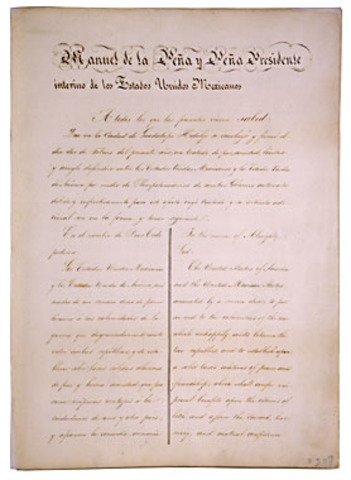 Manuel de la Peña y Peña Presidente
interino de los Estados Unidos Mexicanos
A todos los que las presentes vieren salud:
Que en la Ciudad de Guadalupe Hidalgo se concluyó y firmó el
dia dos de Febrero del presente año, un tratado de paz, amistad, limites
y arreglo definitivo entre los Estados Unidos Mexicanos y los Estados Unidos
de America por medio de Plenipotenciarios de ambos Gobiernos autorizados
debida y respectivamente para este efecto, cuyo tratado y su articulo adi-
cional son en la forma y tenor siguiente.
En el nombre de Dios Todo-
poderoso.
Los Estados Unidos Mexicanos
y los Estados Unidos de America, ani-
mados de un sincero deseo de poner
termino a las calamidades de la
guerra que desgraciadamente existe
entre ambas republicas, y de esta-
blecer sobre bases solidas relaciones
de paz y buena amistad, que pro-
curen reciprocas ventajas a los
ciudadanos de uno y otro pais,
y afianzen la concordia, armonia
In the name of Almighty
God:
The United States of America,
and the United Mexican States,
animated by a sincere desire to put
an end to the calamities of the war
which unhappily exists between the
two republics, and to establish upon
a solid basis relations of peace and
friendship, which shall confer reci-
procal benefits upon the citizens of
both, and assure the concord, har-
mony and mutual confidence